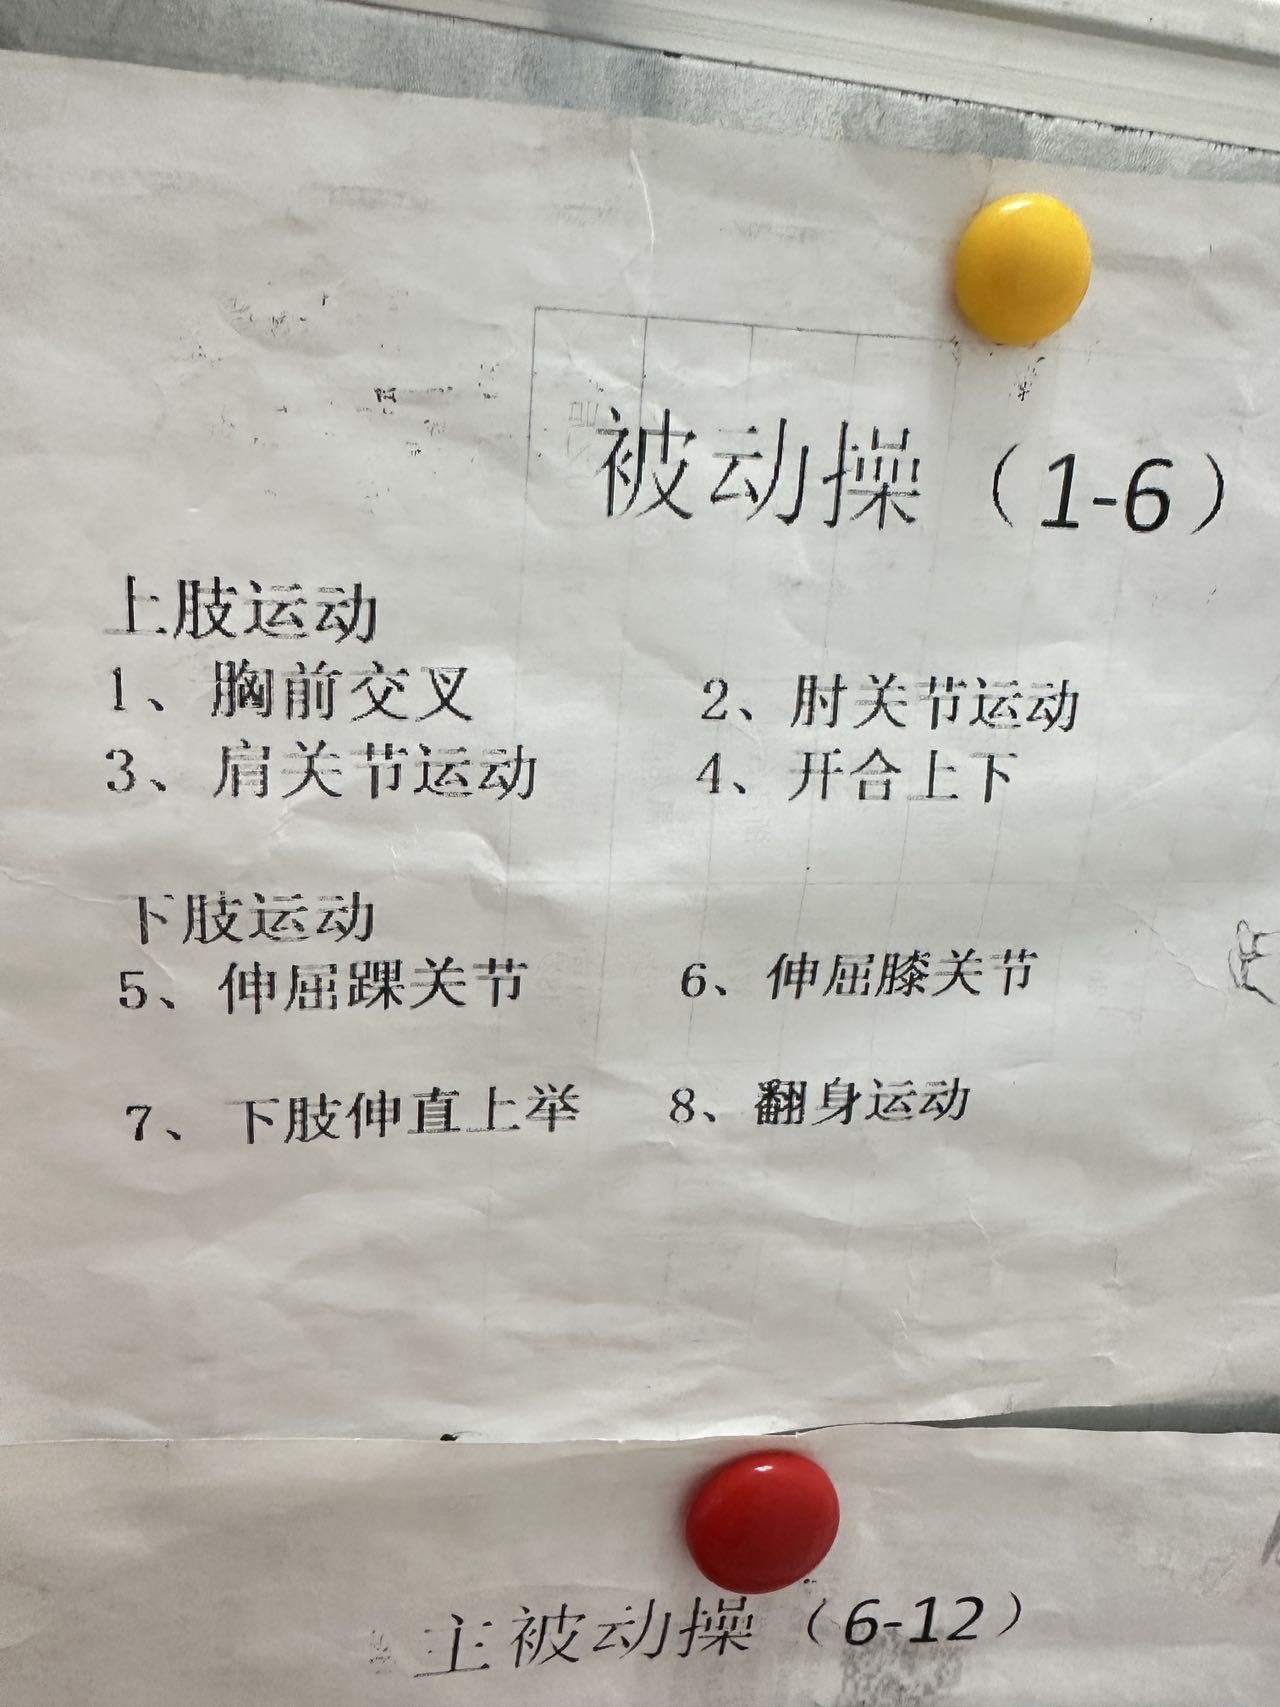 被动操（1-6）
上肢运动
1、胸前交叉 2、肘关节运动
3、肩关节运动 4、开合上下
下肢运动
5、伸屈踝关节 6、伸屈膝关节
7、下肢伸直上举 8、翻身运动
主被动操（6-12）